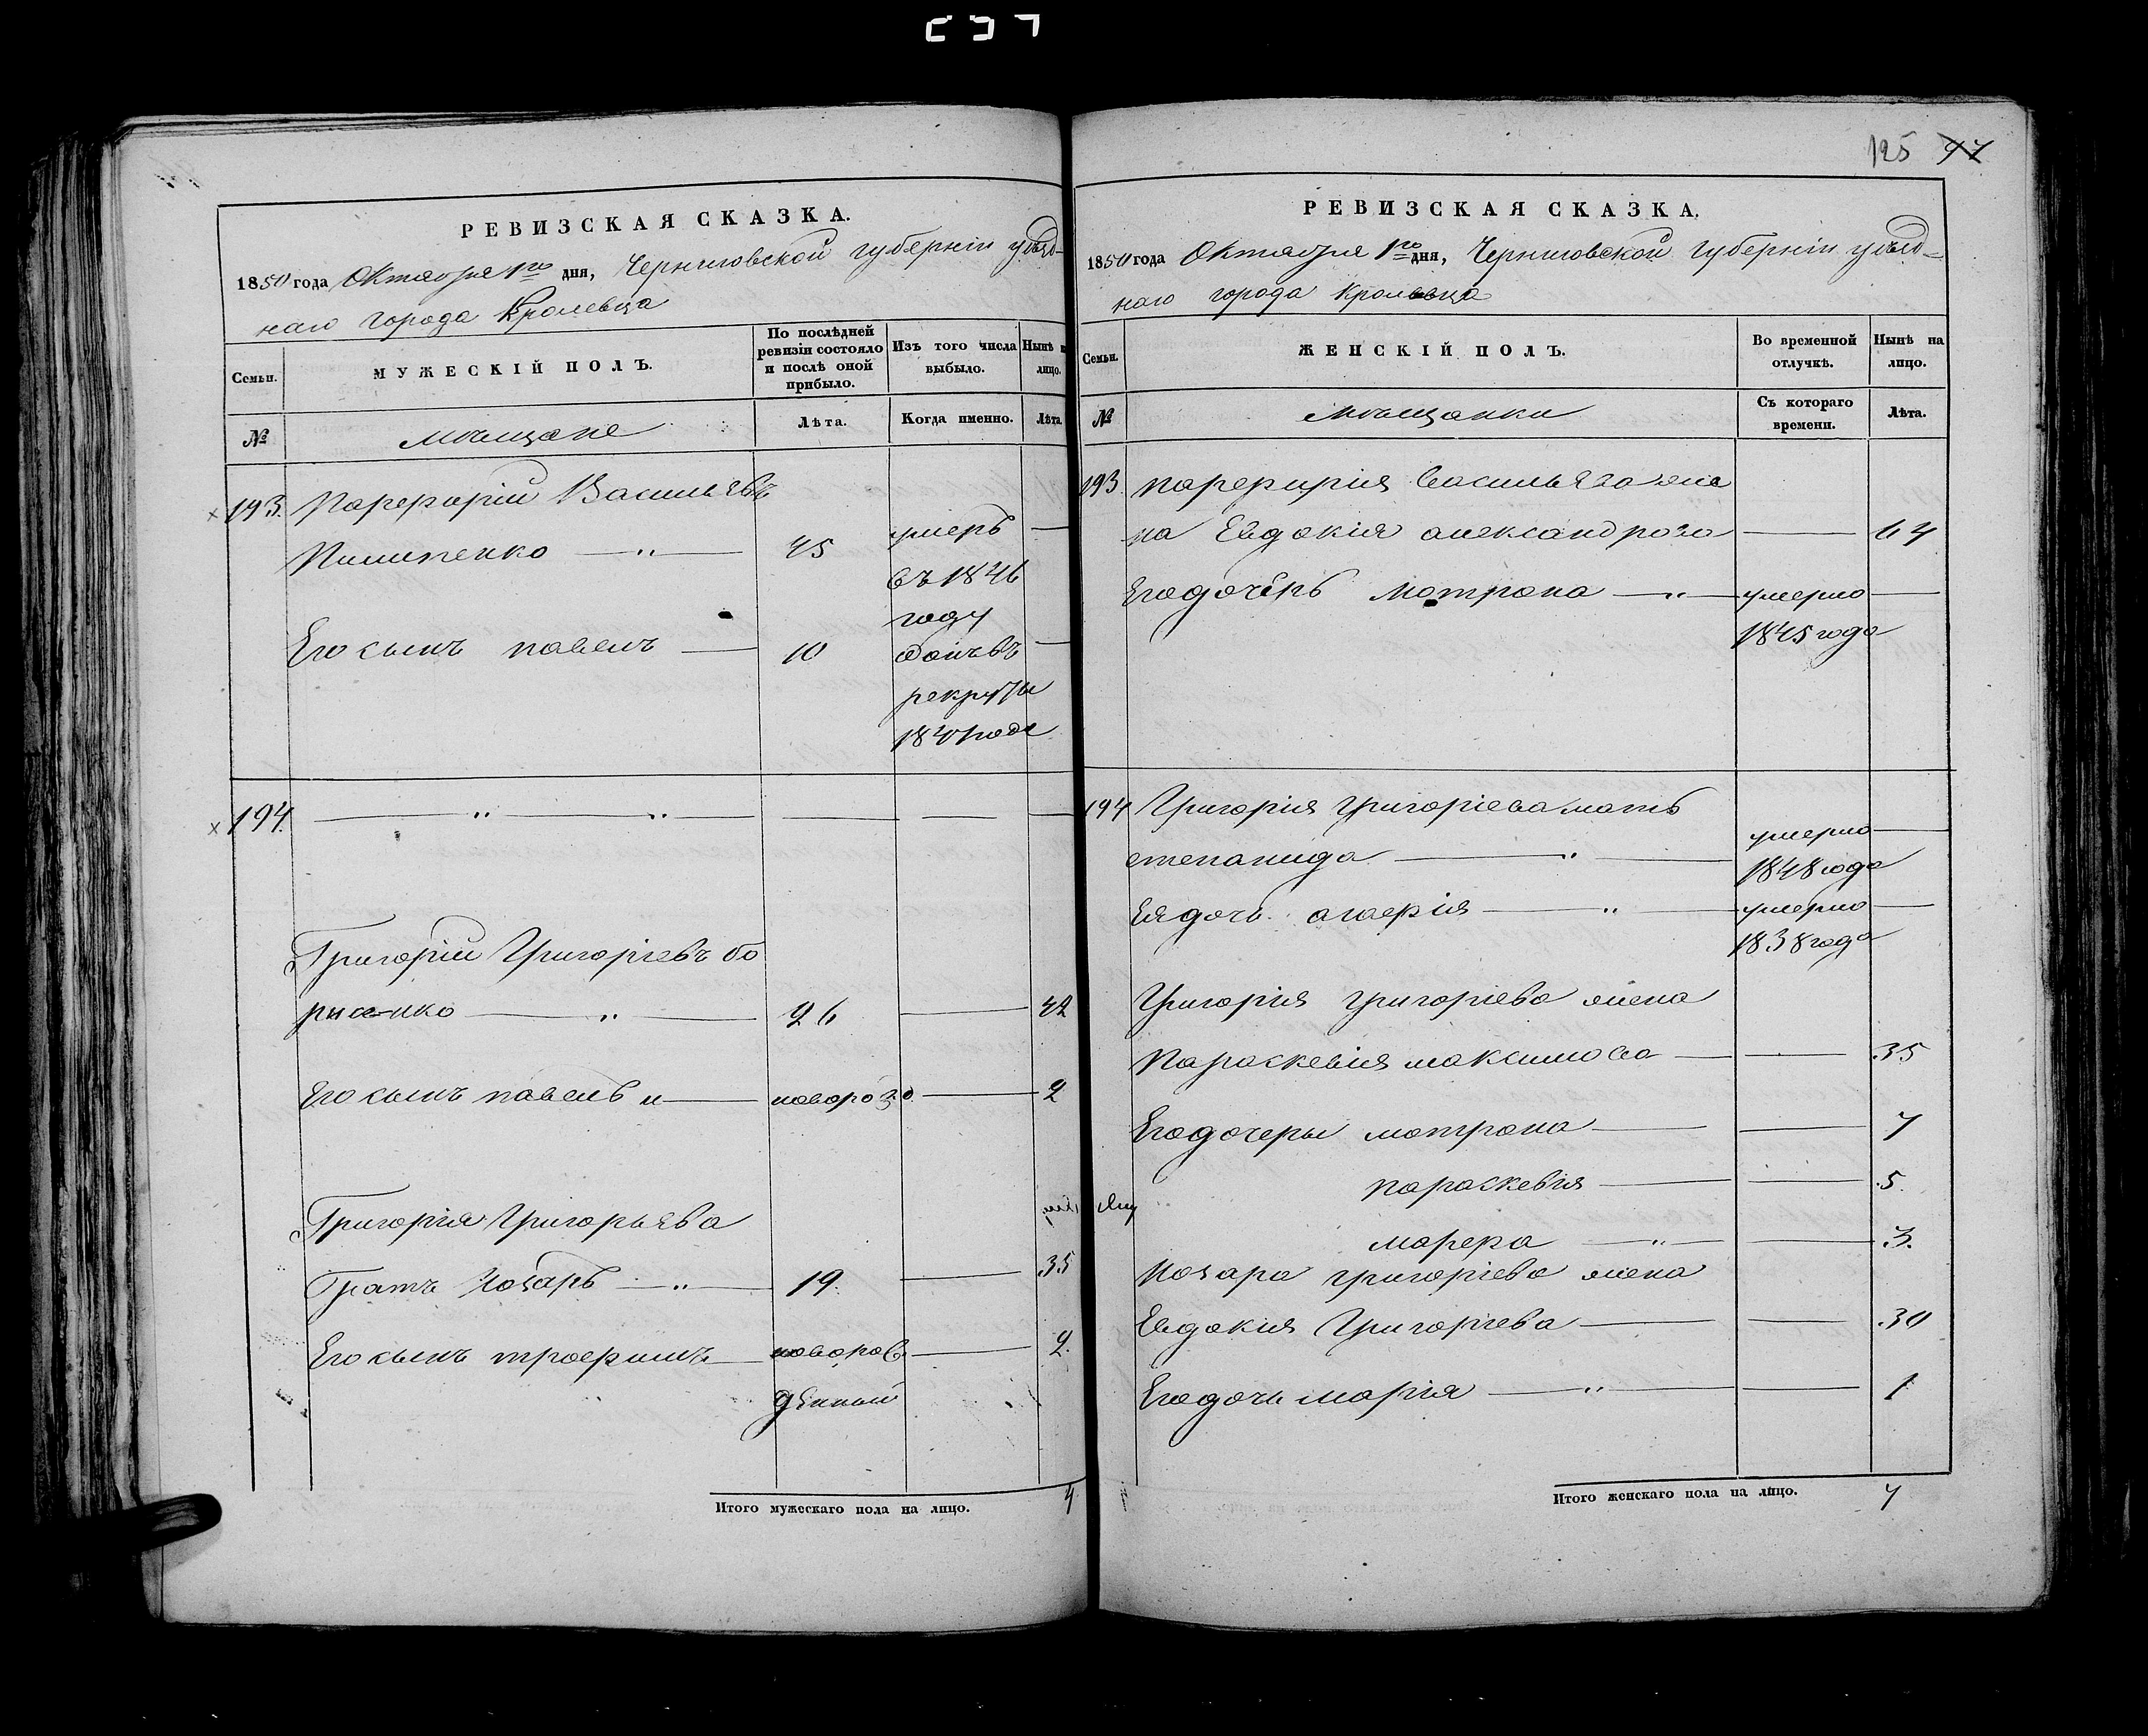 125 97
РЕВИЗСКАЯ СКАЗКА.
1850 года Октября 1го дня, Черниговской губерніи уѣзд-
наго города Кролевца
Семьи.
МУЖЕСКІЙ ПОЛЪ.
По послѣдней ревизіи состояло и послѣ оной прибыло.
Изъ того числа выбыло.
Нынѣ
лицо.
№
мѣщане
Лѣта.
Когда именно.
Лѣта.
193. Порфирій Васильевъ
Пилипенко — „ — 45 умеръ —
въ 1846
году
Его сынъ павелъ — 10 —
рекруты
184 года
194. — „ — „ — — — —
Григорій Григоріевъ бо
рисенко — „ — 26 — 42
Его сынъ павелъ — 2
Григорія Григорьева
Братъ Назаръ — „ — 19. — 35
Его сынъ трофимъ — новорож — 2.
денный
Итого мужескаго пола на лицо. 4
РЕВИЗСКАЯ СКАЗКА.
1850 года Октября 1го дня, Черниговской губерніи уѣзд-
наго города Кролевца
Семьи.
ЖЕНСКІЙ ПОЛЪ.
Во временной отлучкѣ.
Нынѣ на лицо.
№
мѣщанки
Съ котораго времени.
Лѣта.
193. порфирія васильева же
на Евдокія александрова — 64
Его дочерь мотрона — „ — умерла —
1845 года
194 Григорія григоріева мать
степанида — „ — умерла —
1848 года
Ея дочь агафія — „ — умерла —
1838 года
Григорія григоріева жена
Параскевія максимова — — 35
Его дочеры мотрона — — 7
параскевія — — 5.
марфа — „ — — 3.
Назара григоріева жена
Евдокія Григоріева — — 30
Его дочь марія — „ — — 1
Итого женскаго пола на лицо. 7